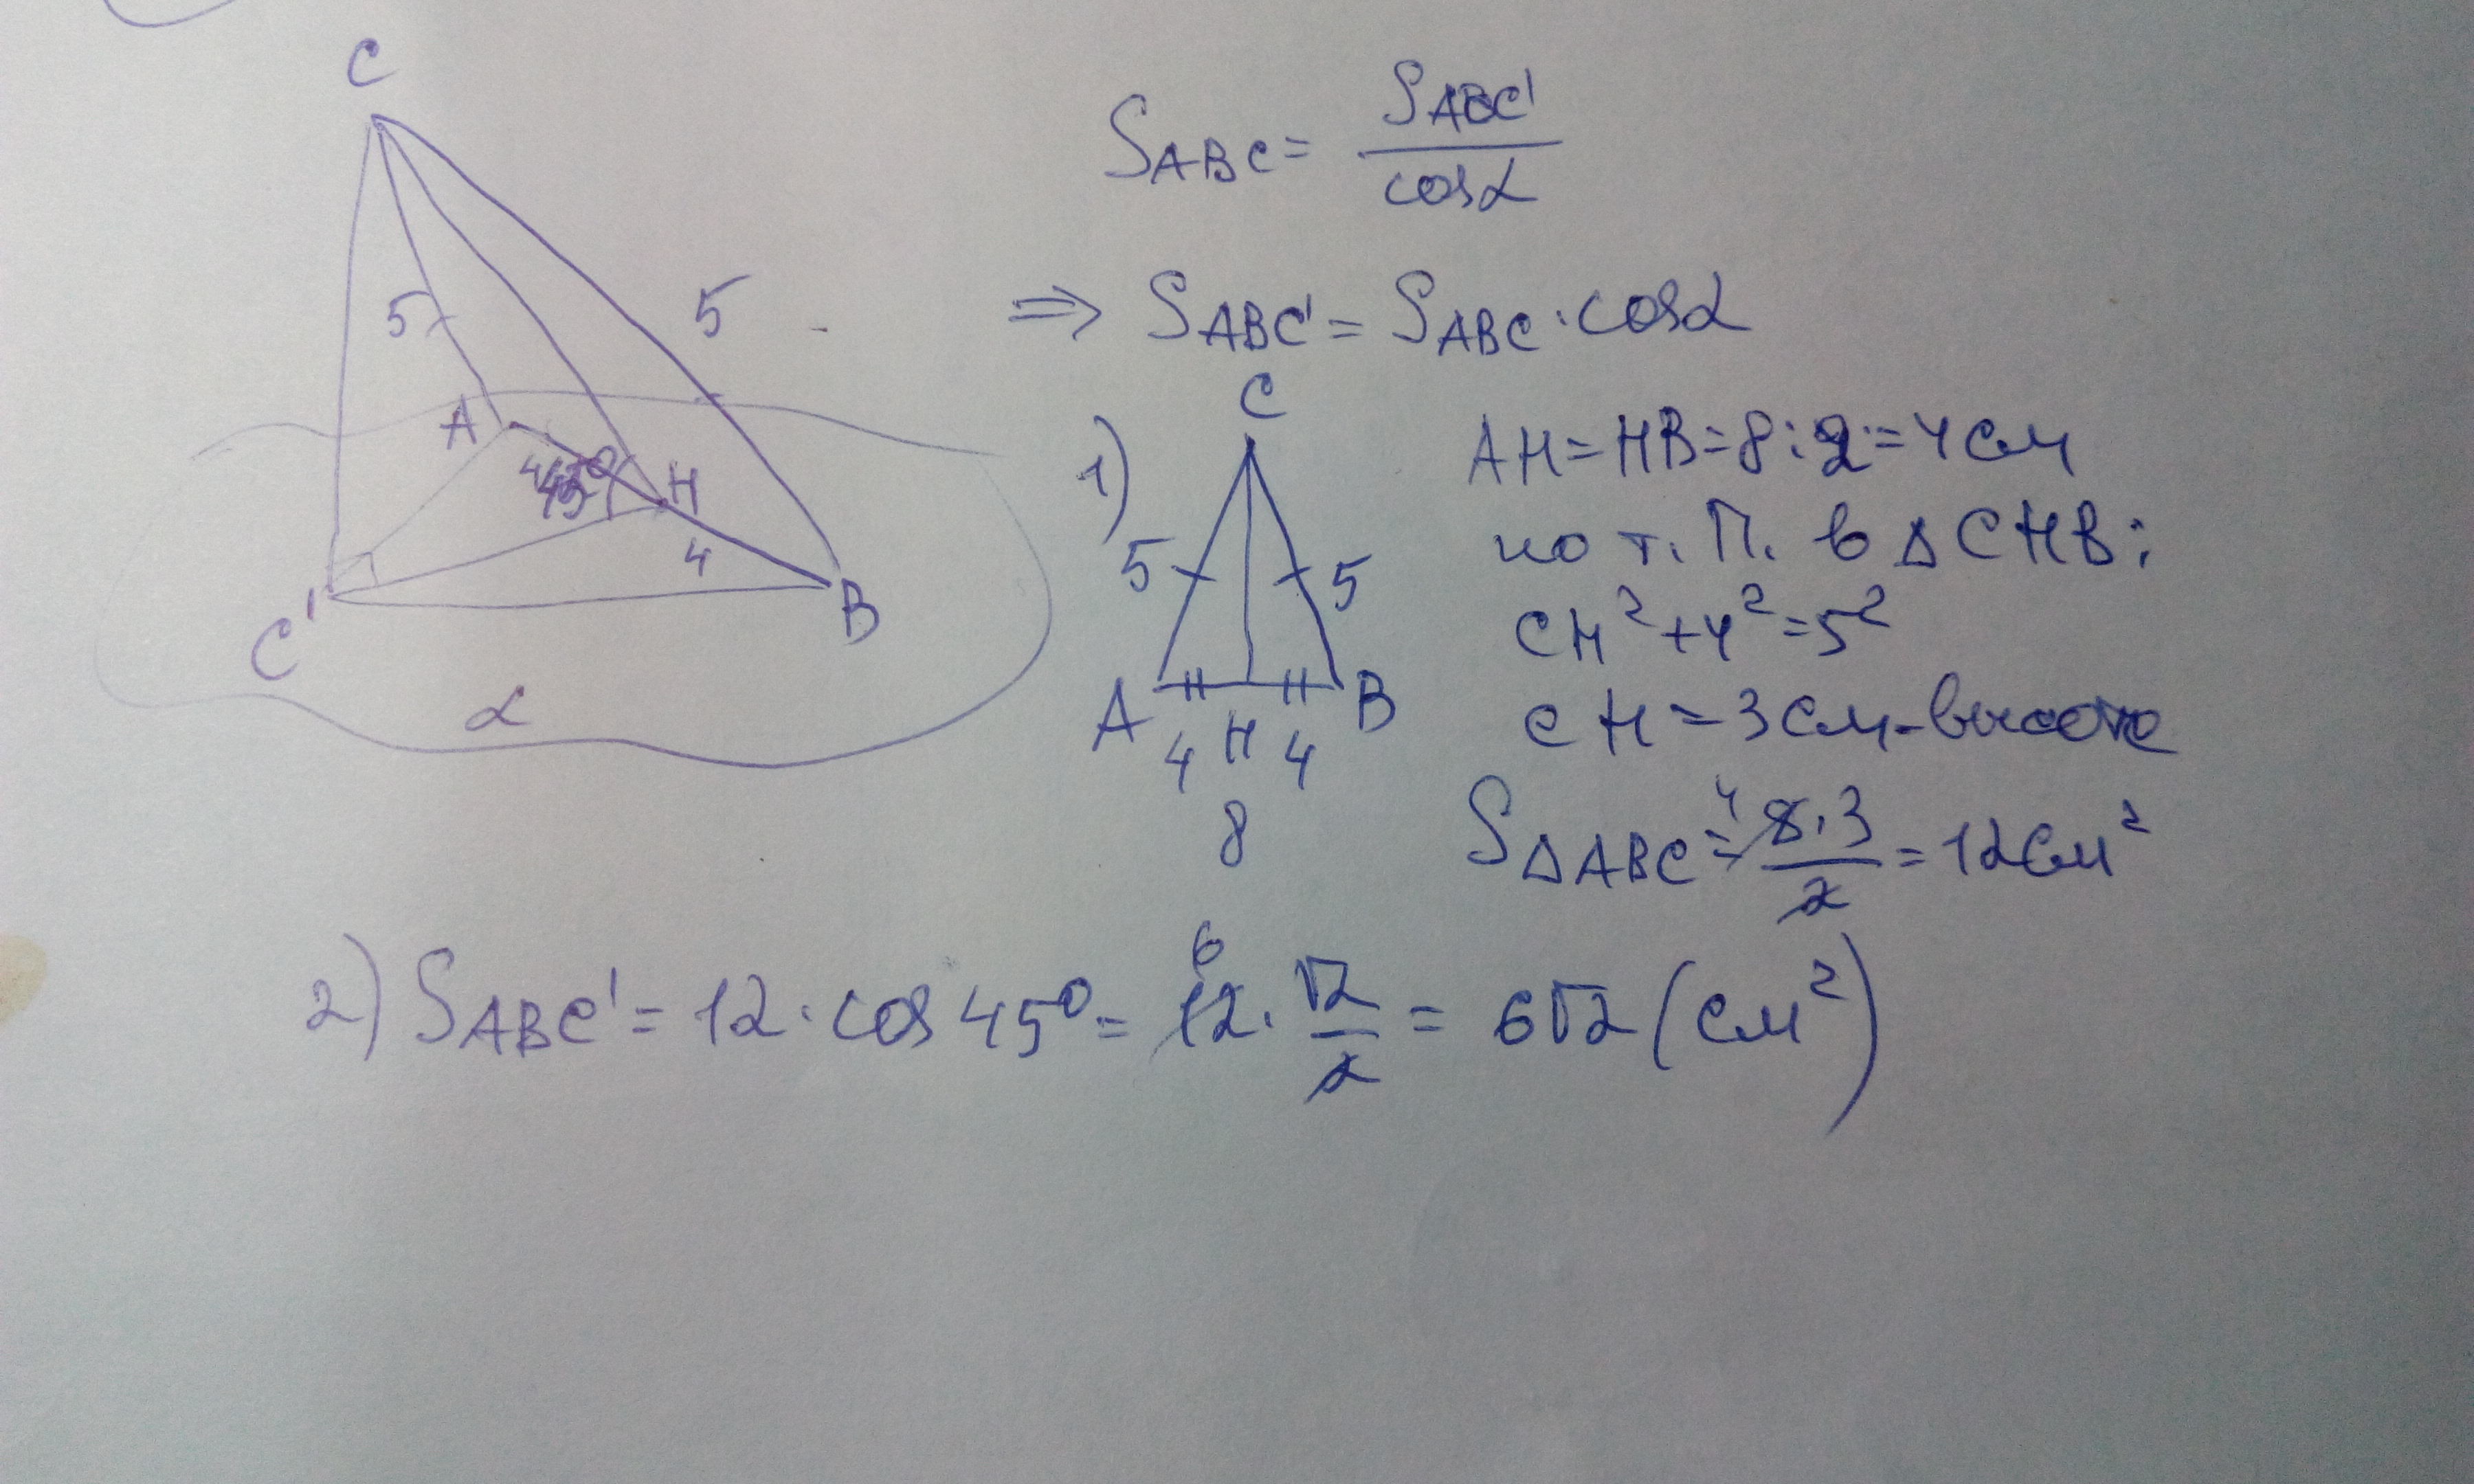 C
5
5
A
45°
H
4
C'
B
α
S ABC = S ABC' / cosα
⇒ S ABC' = S ABC · cosα
1)
C
5
5
A
H
B
4
4
8
AH=HB=8:2=4см
по т. П. в Δ CHB:
CH²+4²=5²
CH=3см-высота
S Δ ABC = 8·3 / 2 = 12см²
4
2) S ABC' = 12 · cos 45° = 12 · √2 / 2 = 6√2 (см²)
6